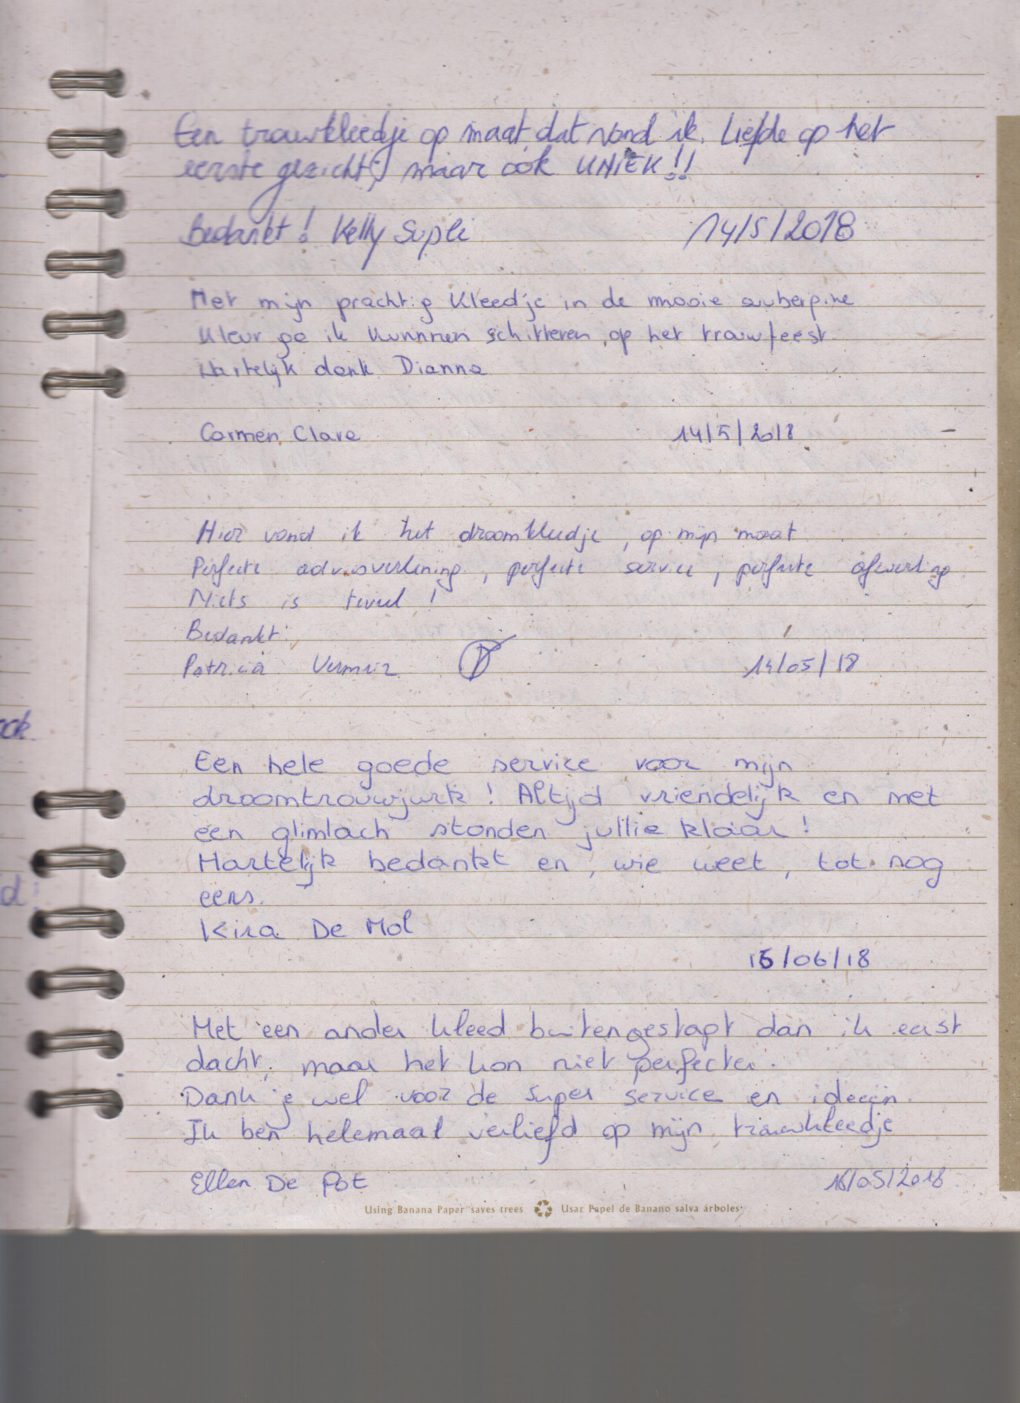 Een trouwkleedje op maat, dat vond ik. Liefde op het
eerste gezicht, maar ook UNIEK!!
Bedankt! Kelly Supli
14/5/2018
Met mijn prachtig kleedje in de mooie auberpine
kleur ga ik kunnnen schitteren, op het trouwfeest.
Hartelijk dank Dianna
Carmen Clave
14/5/2018
Hier vond ik het droomkleedje, op mijn maat
Perfecte adviesverlening, perfecte service, perfecte afwerking
Niets is teveel!
Bedankt,
Patricia
14/05/18
Een hele goede service voor mijn
droomtrouwjurk! Altijd vriendelijk en met
een glimlach stonden jullie klaar!
Hartelijk bedankt en, wie weet, tot nog
eens.
Kira De Mol
15/06/18
Met een ander kleed buitengestapt dan ik eerst
dacht, maar het kon niet perfecter.
Dank je wel voor de super service en ideeën.
Ik ben helemaal verliefd op mijn trouwkleedje
Ellen De Pot
16/05/2018
Using Banana Paper saves trees Usar Papel de Banano salva árboles